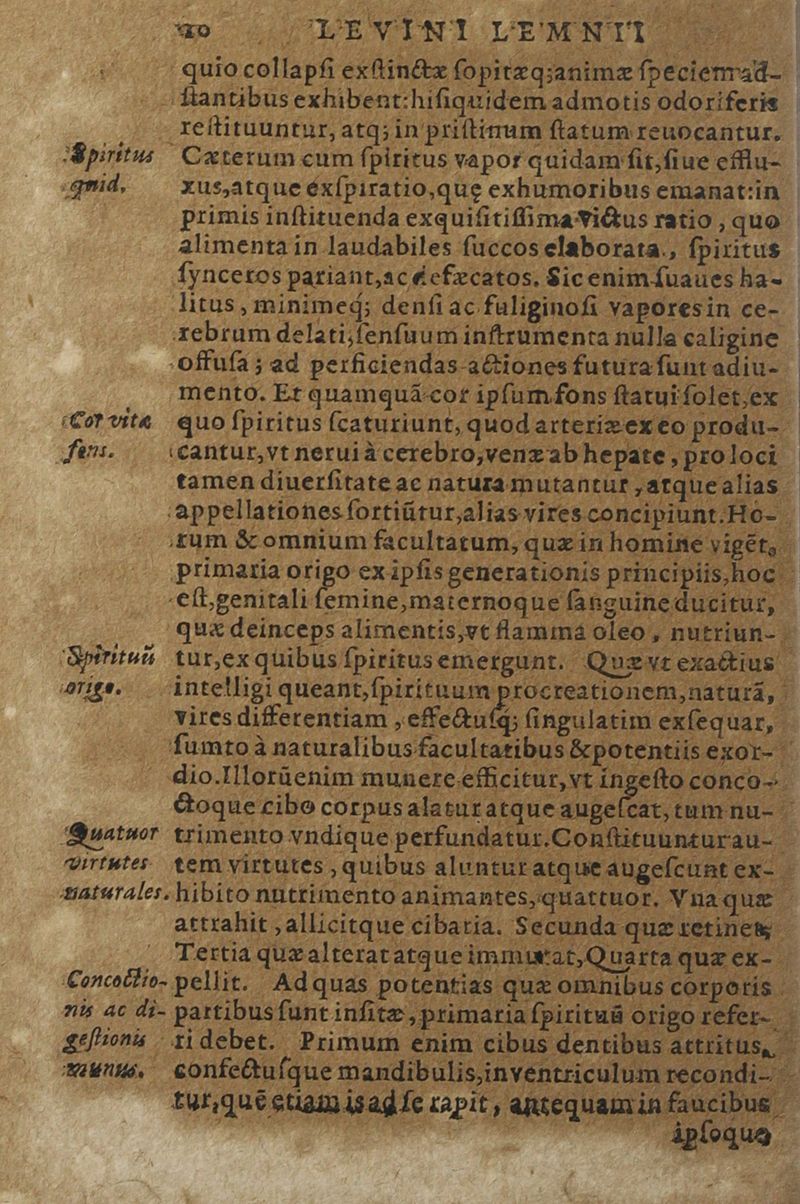 LEVINI LEMNII
quio collapsi exstinctæ sopitæq; animæ speciem ad-
stantibus exhibent: hi siquidem admotis odoriferis
restituuntur, atq; in pristinum statum reuocantur.
Spiritus Cæterum cum spiritus vapor quidam sit, siue efflu-
quid. xus, atque exspiratio, que ex humoribus emanat: in
primis instituenda exquisitissima victus ratio, quo
alimenta in laudabiles succos elaborata, spiritus
synceros pariant, ac defæcatos. Sic enim suaues ha-
litus, minimeq; densi ac fuliginosi vapores in ce-
rebrum delati, sensuum instrumenta nulla caligine
offusa; ad perficiendas actiones futura sunt adiu-
mento. Et quamquā cor ipsum fons statui solet, ex
Cor vitæ quo spiritus scaturiunt, quod arteriæ ex eo produ-
fons. cantur, vt nerui à cerebro, venæ ab hepate, pro loci
tamen diuersitate ac natura mutantur, atque alias
appellationes sortiūtur, alias vires concipiunt. Ho-
rum & omnium facultatum, quæ in homine vigēt,
primaria origo ex ipsis generationis principiis, hoc
est, genitali semine, maternoque sanguine ducitur,
quæ deinceps alimentis, vt flamma oleo, nutriun-
Spirituū tur, ex quibus spiritus emergunt. Quæ vt exactius
origo. intelligi queant, spirituum procreationem, naturā,
vires differentiam, effectusq; singulatim exsequar,
sumto à naturalibus facultatibus & potentiis exor-
dio. Illorū enim munere efficitur, vt ingesto conco-
ctoque cibo corpus alatur atque augescat, tum nu-
Quatuor trimento vndique perfundatur. Constituuntur au-
virtutes tem virtutes, quibus aluntur atque augescunt ex-
naturales. hibito nutrimento animantes, quattuor. Vna quæ
attrahit, allicitque cibaria. Secunda quæ retinet,
Tertia quæ alterat atque immutat, Quarta quæ ex-
Concoctio- pellit. Ad quas potentias quæ omnibus corporis
nis ac di- partibus sunt insitæ, primaria spirituū origo refer-
gestionis ri debet. Primum enim cibus dentibus attritus,
munus. confectusque mandibulis, in ventriculum recondi-
tur, quē etiam is ad se rapit, antequam in faucibus
ipsoque